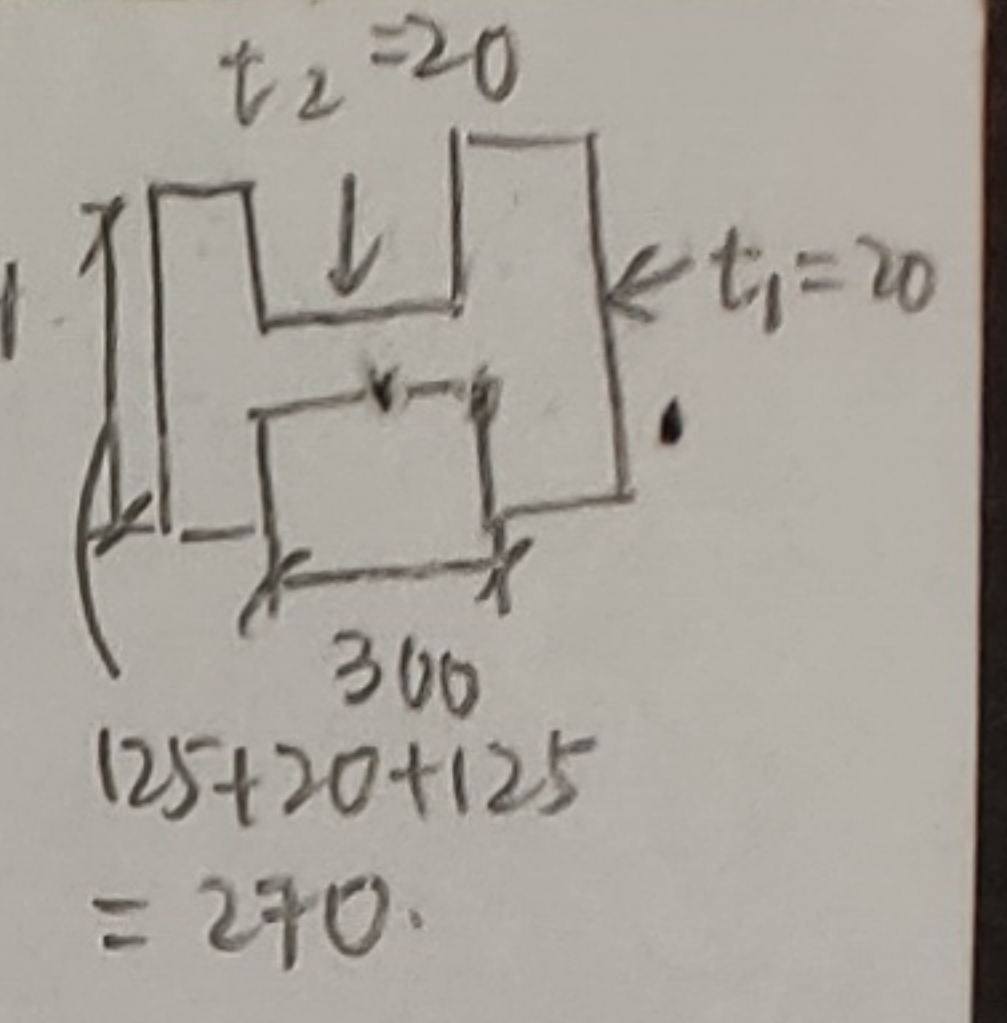 t₂=20
t₁=20
300
125+20+125
=270.